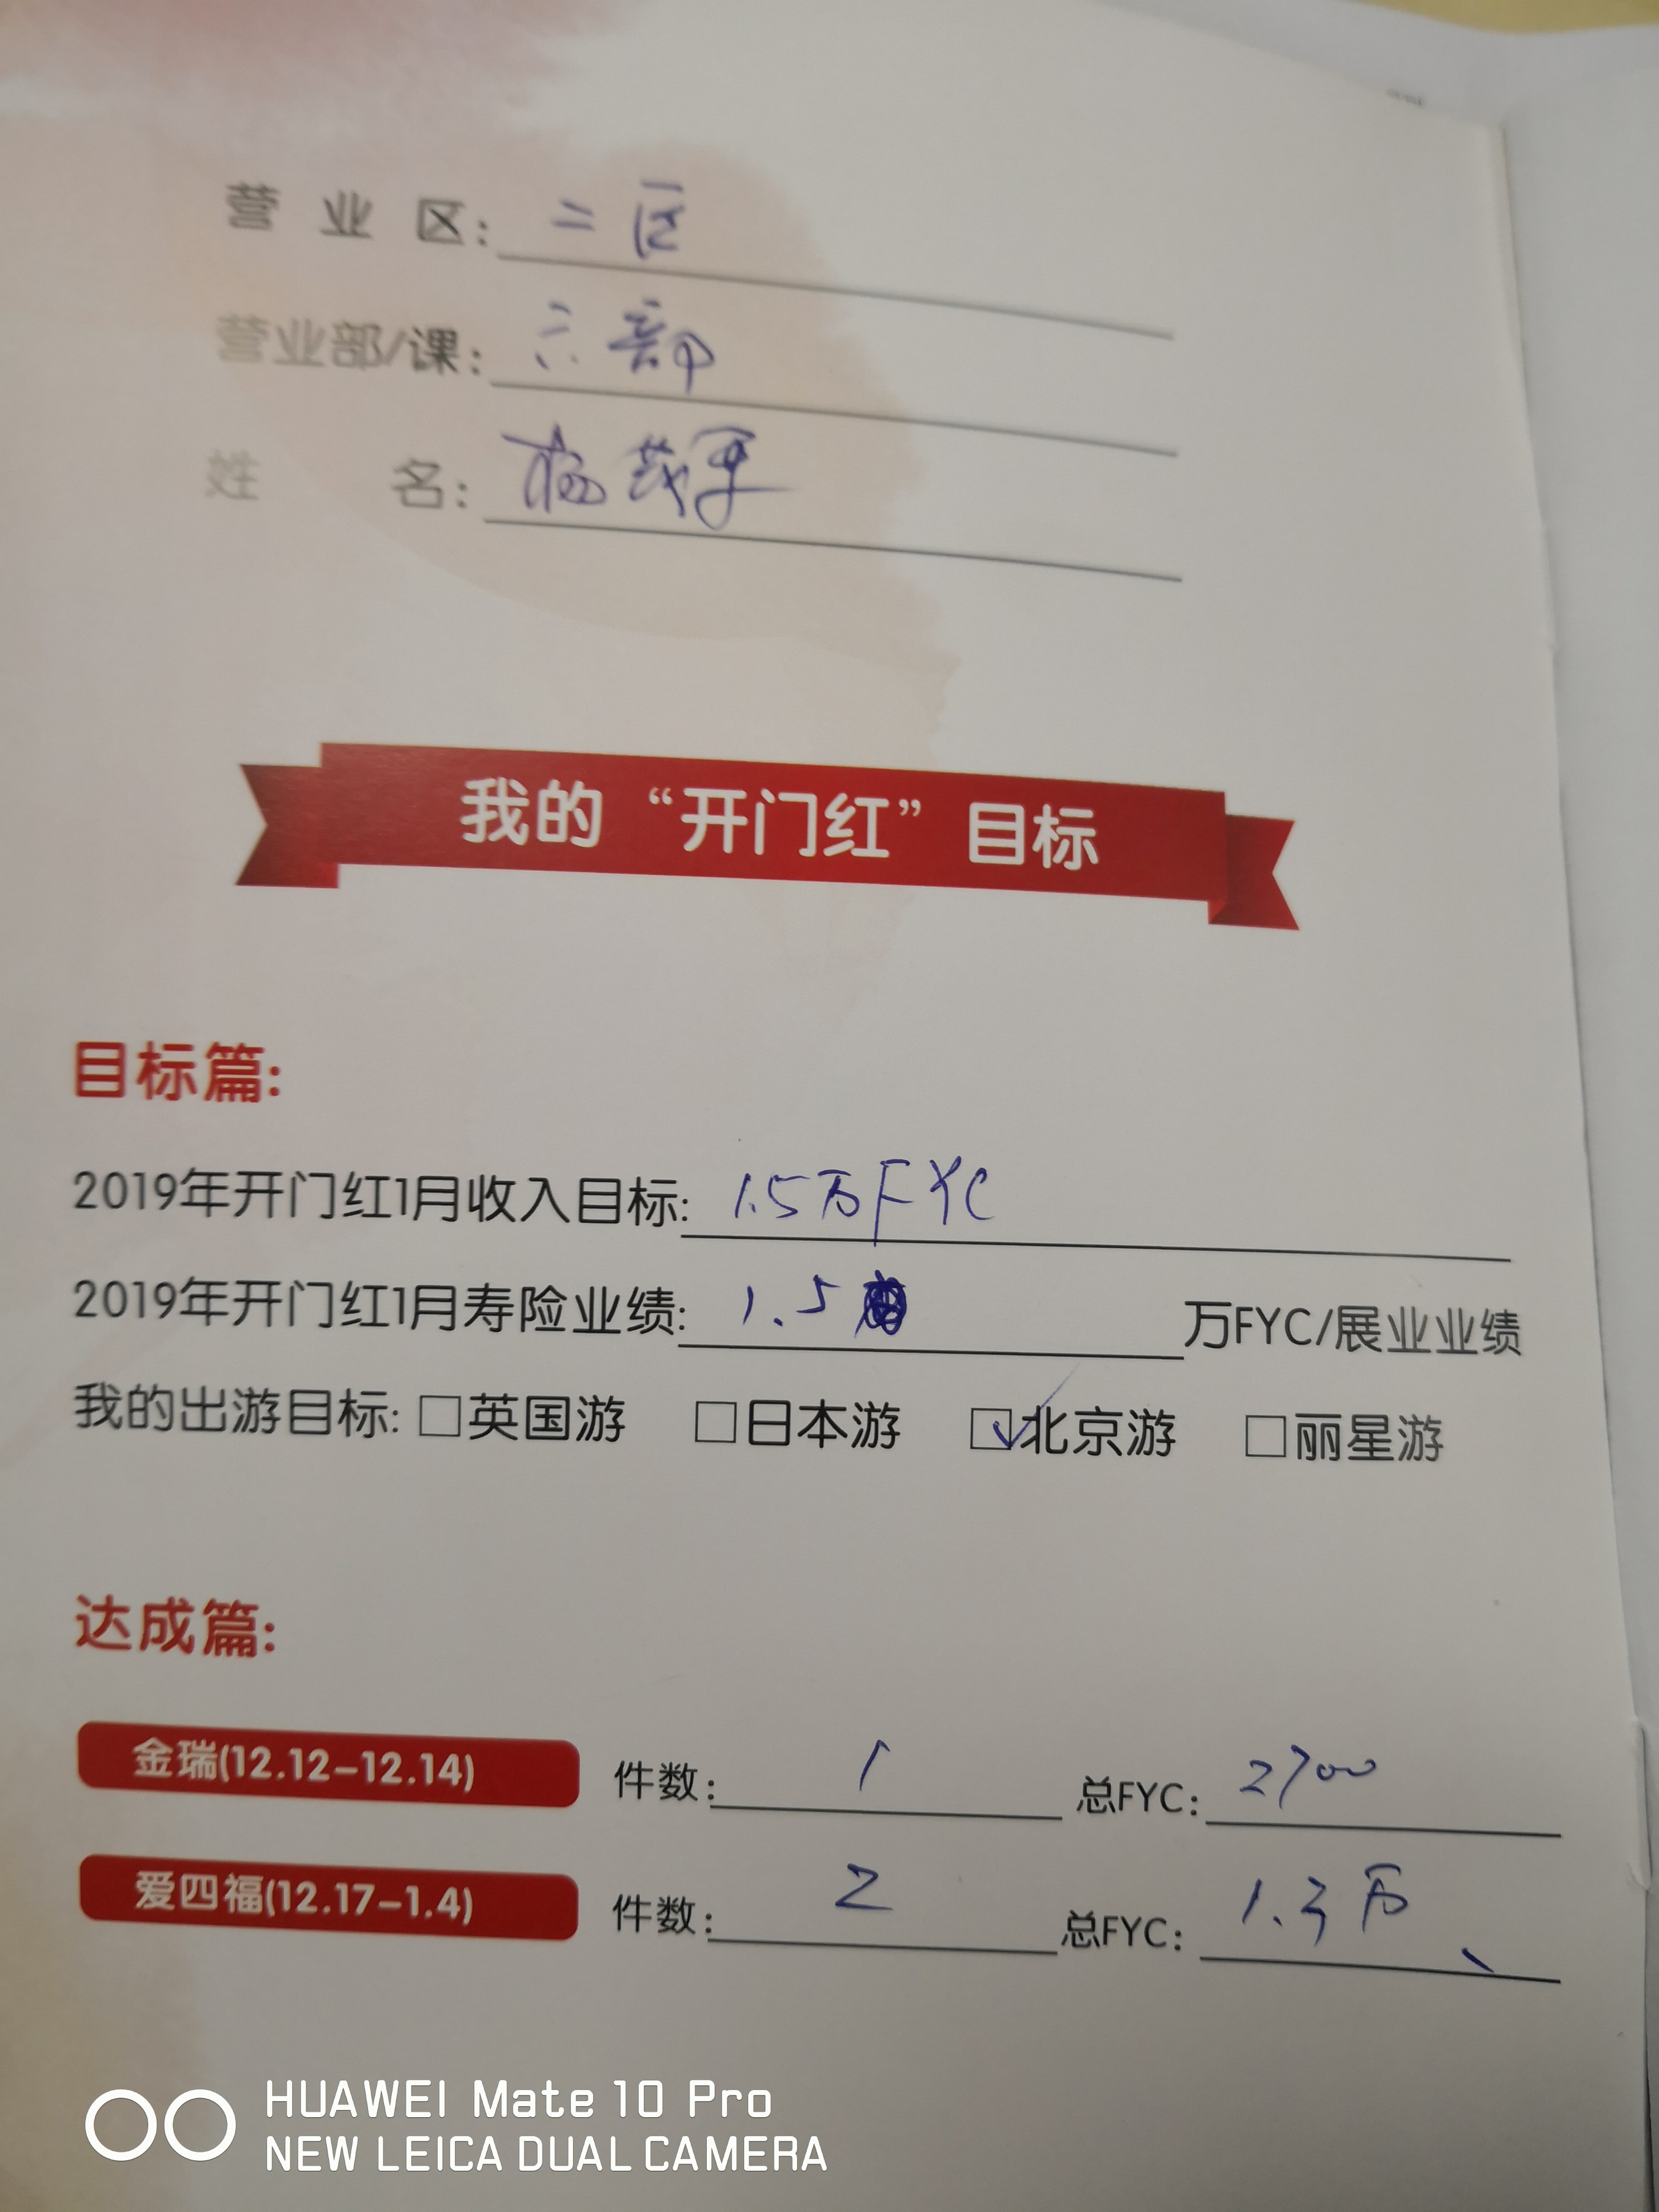 营业区: 二区
营业部/课: 六部
姓名: 杨
我的“开门红”目标
目标篇:
2019年开门红1月收入目标: 1.5万FYC
2019年开门红1月寿险业绩: 1.5 万FYC/展业业绩
我的出游目标: □英国游 □日本游 ☑北京游 □丽星游
达成篇:
金瑞(12.12-12.14) 件数: 1 总FYC: 2700
爱四福(12.17-1.4) 件数: 2 总FYC: 1.3万
HUAWEI Mate 10 Pro
NEW LEICA DUAL CAMERA